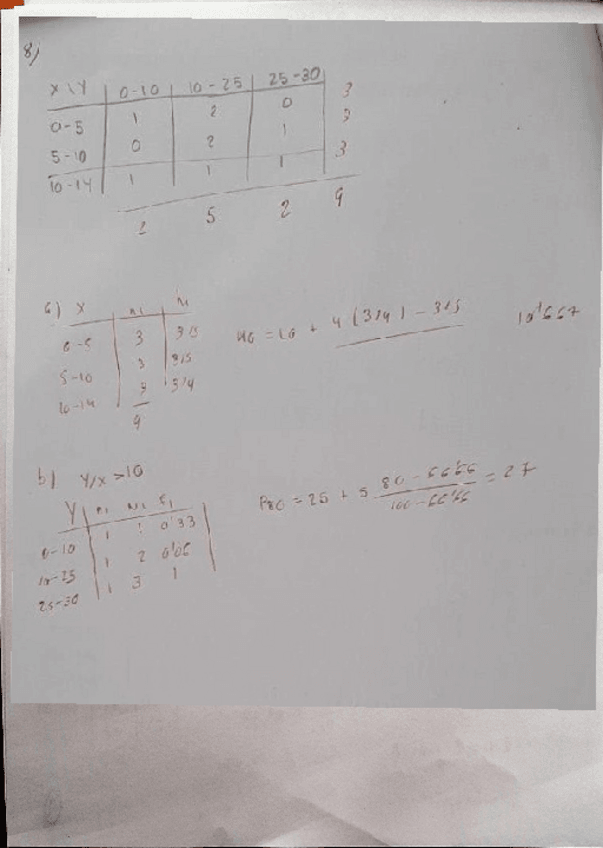 8)
X \ Y 0-10 10-25 25-30
0-5 1 2 0 3
5-10 0 2 1 3
10-14 1 1 1 3
2 5 2 9
a) X ni hi
0-5 3 3/5
5-10 3 3/5
10-14 3 3/4
9
Mo = 10 + 4 (3/4) - 3/5
10'667
b) Y/X >10
Y ni Ni Fi
0-10 1 1 0'33
10-25 1 2 0'66
25-30 1 3 1
P80 = 25 + 5 80 - 66'66 / 100 - 66'66 = 27